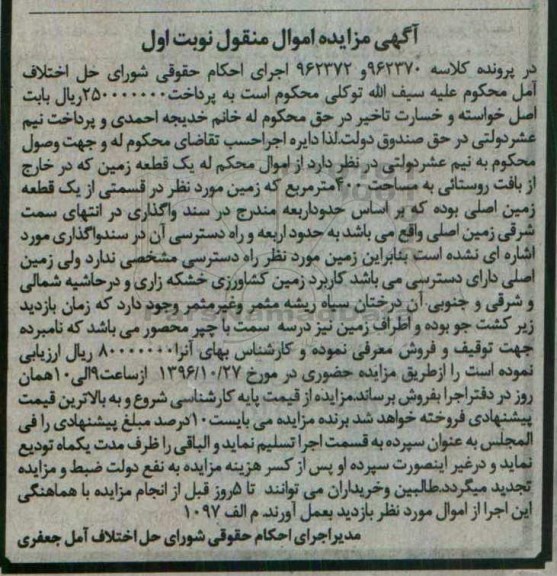 آگهی مزایده اموال منقول نوبت اول
در پرونده کلاسه ۹۶۲۳۷۰و ۹۶۲۳۷۲ اجرای احکام حقوقی شورای حل اختلاف
آمل محکوم علیه سیف الله توکلی محکوم است به پرداخت۲۵۰۰۰۰۰۰۰ریال بابت
اصل خواسته و خسارت تاخیر در حق محکوم له خانم خدیجه احمدی و پرداخت نیم
عشردولتی در حق صندوق دولت.لذا دایره اجراحسب تقاضای محکوم له و جهت وصول
محکوم به نیم عشردولتی در نظر دارد از اموال محکم له یک قطعه زمین که در خارج
از بافت روستائی به مساحت ۴۰۰مترمربع که زمین مورد نظر در قسمتی از یک قطعه
زمین اصلی بوده که بر اساس حدوداربعه مندرج در سند واگذاری در انتهای سمت
شرقی زمین اصلی واقع می باشد به حدود اربعه و راه دسترسی آن در سندواگذاری مورد
اشاره ای نشده است بنابراین زمین مورد نظر راه دسترسی مشخصی ندارد ولی زمین
اصلی دارای دسترسی می باشد کاربرد زمین کشاورزی خشکه زاری و درحاشیه شمالی
و شرقی و جنوبی آن درختان سیاه ریشه مثمر وغیرمثمر وجود دارد که زمان بازدید
زیر کشت جو بوده و اطراف زمین نیز درسه سمت با چپر محصور می باشد که نامبرده
جهت توقیف و فروش معرفی نموده و کارشناس بهای آنرا۸۰۰۰۰۰۰۰۰ ریال ارزیابی
نموده است را ازطریق مزایده حضوری در مورخ ۱۳۹۶/۱۰/۲۷ ازساعت۹الی۱۰همان
روز در دفتراجرا بفروش برساند.مزایده از قیمت پایه کارشناسی شروع و به بالاترین قیمت
پیشنهادی فروخته خواهد شد برنده مزایده می بایست۱۰درصد مبلغ پیشنهادی را فی
المجلس به عنوان سپرده به قسمت اجرا تسلیم نماید و الباقی را ظرف مدت یکماه تودیع
نماید و درغیر اینصورت سپرده او پس از کسر هزینه مزایده به نفع دولت ضبط و مزایده
تجدید میگردد.طالبین وخریداران می توانند تا ۵روز قبل از انجام مزایده با هماهنگی
این اجرا از اموال مورد نظر بازدید بعمل آورند. م الف ۱۰۹۷
مدیراجرای احکام حقوقی شورای حل اختلاف آمل جعفری